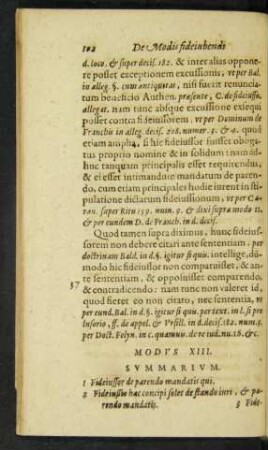 102 De Modis fideiubendi
d. loco. & super decis. 182. & inter alias opponere
posset exceptionem excussionis, vt per Bal.
in alleg. §. cum antiquitas, nisi fuerit renunciatum
beneficio Authen. præsente, C. de fideiusso.
allegat. nam tunc absque excussione exiequi
posset contra fideiussorem, vt per Dominum de
Franchis in alleg. decis. 208. numer. 3. & 4. quod
etiam amplia, si hic fideiussor fuisset obligatus
proprio nomine & in solidum nam adhuc
tanquam principalis esset requirendus,
& ei esset intimandum mandatum de parendo.
cum etiam principales hodie iurent in stipulatione
dictarum fideiussionum, vt per Caran.
super Ritu 159. num. 9. & dixi supra modo 11.
& per eundem D. de Franch. in d. decis.
Quod tamen supra diximus, hunc fideiussorem
non debere citari ante sententiam, per
doctrinam Bald. in d. §. igitur si quis. intellige, dummodo
hic fideiussor non comparuisset, & ante
sententiam, & opposuisset comparendo,
37 & contradicendo: nam tunc non valeret id,
quod fieret eo non citato, nec sententia, vt
per eund. Bal. in d. §. igitur si quis. per text. in l. si pro
lusorio, ff. de appel. & Vrsill. in d. decis. 182. num. 5.
per Doct. Felyn. in c. quamuis. de re iud. nu. 18. & c.
MODVS XIII.
SVMMARIVM.
1 Fideiussor de parendo mandatis qui.
2 Fideiussio hæc concipi solet de stando iuri, & parendo
mandatis.
3 Fide-